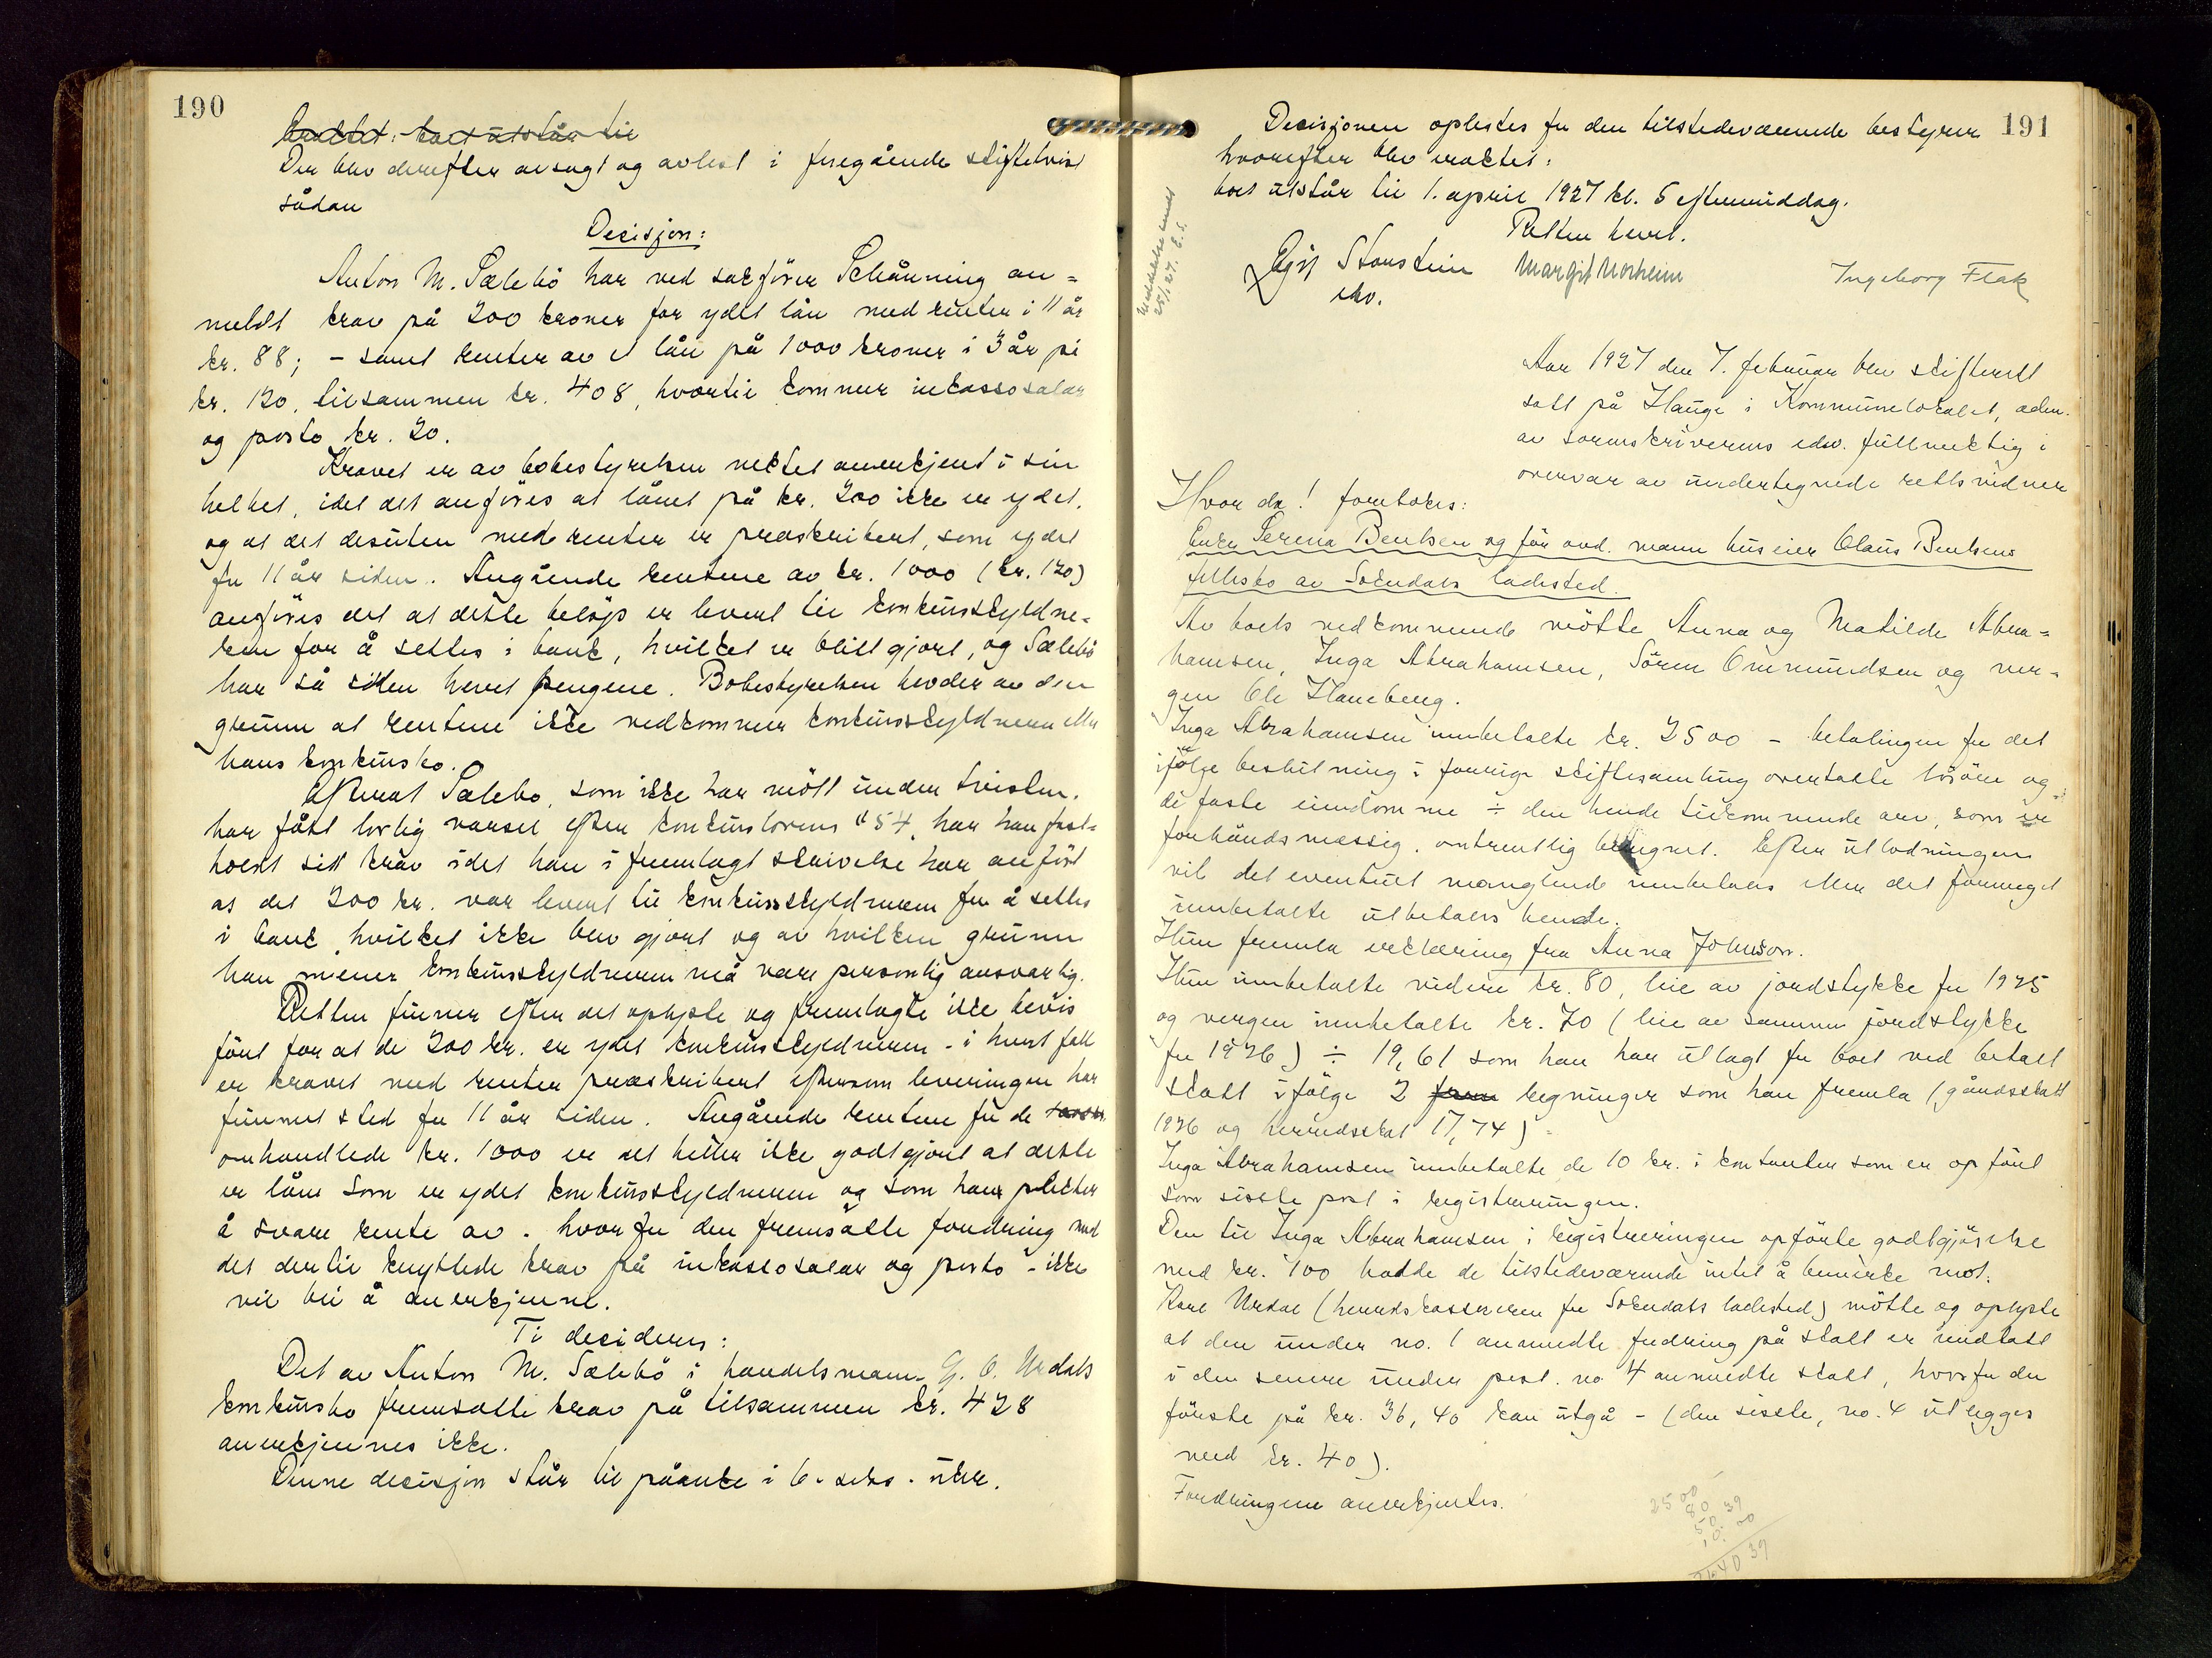 190
Der blev derefter avsagt og avlest i foregående skifterett
sådan
Decisjon:
Anton M. Sælebö har ved sakförer Schånning an=
meldt krav på 200 kroner for ydet lån med renter i 11 år
kr. 88; - samt renter av et lån på 1000 kroner i 3 år på
kr. 120, tilsammen kr. 408, hvortil kommer inkassosalær
og porto kr. 20.
Kravet er av bobestyrelsen nektet anerkjent i sin
helhet, idet det anföres at lånet på kr. 200 ikke er ydet,
og at det desuten med renter er præskribert, som ydet
for 11 år siden. Angående rentene av kr. 1000 (kr. 120)
anföres det at dette belöp er levert til konkursskyldne-
ren for å settes i bank, hvilket er blitt gjort, og Sælebö
har så siden hevet pengene. Bobestyrelsen hevder av den
grunn at rentene ikke vedkommer konkursskyldneren eller
hans konkursbo.
Efterat Sælebö, som ikke har mött under tvisten,
har fått lovlig varsel efter konkurslovens § 54, har han fast-
holdt sitt krav idet han i fremlagt skrivelse har anfört
at det 200 kr. var levert til konkursskyldneren for å settes
i bank, hvilket ikke blev gjort og av hvilken grunn
han mener konkursskyldneren må være personlig ansvarlig.
Retten finner efter det oplyste og fremlagte ikke bevis
fört for at de 200 kr. er ydet konkursskyldneren - i hvert fall
er kravet med renter præskribert eftersom leveringen har
funnet sted for 11 år siden. Angående rentene for de
omhandlede kr. 1000 er det heller ikke godtgjort at dette
er lån som er ydet konkursskyldneren og som han plikter
å svare rente av. hvorfor den fremsatte fordring med
det dertil knyttede krav på inkassosalær og porto - ikke
vil bli å anerkjenne.
Ti decideres:
Det av Anton M. Sælebö i handelsmann G. O. Urdals
konkursbo fremsatte krav på tilsammen kr. 428
anerkjennes ikke.
Denne decisjon står til påanke i 6 - seks - uker.
191
Decisjonen oplestes for den tilstedeværende bestyrer
hvorefter blev eraktet:
boet utstår til 1. april 1927 kl. 5 eftermiddag.
Retten hevet.
25/1. 27. E.S.
Egil Storstein Margit Mosheim Ingeborg Flak
edv.
Aar 1927 den 7. februar blev skifterett
satt på Hauge i Kommunelokalet, adm.
av sorenskriverens edsv. fullmektig i
overvær av undertegnede rettsvidner
Hvor da! foretokes:
Enke Serina Bentsen og för avd. mann huseier Olaus Bentsens
fellesbo av Sokndals ladested.
Av boets vedkommende mötte Anna og Matilde Abra=
hamsen, Inga Abrahamsen, Sören Ommundsen og ver-
gen Ole Haneberg.
Inga Abrahamsen innbetalte kr. 2500 - betalingen for det
ifölge beslutning i forrige skiftesamling overtatte lösöre og
de faste eiendomme ÷ den hende tilkommende arv, som er
forhåndsmessig, omtrentlig beregnet. Efter utlodningen
vil det eventuelt manglende innbetales eller det formeget
innbetalte utbetales hende.
Hun fremla erklæring fra Anna Johnson.
Hun innbetalte videre kr. 80, leie av jordstykke for 1925
og vergen innbetalte kr. 70 (leie av samme jordstykke
for 1926) ÷ 19,61 som han har utlagt for boet ved betalt
skatt ifölge 2 regninger som han fremla (gåndsskatt
1926 og herredsskat 17,74) -
Inga Abrahamsen innbetalte de 10 kr. i kontanter som er opfört
som siste post i registreringen.
Den til Inga Abrahamsen i registreringen opförte godtgjörelse
med kr. 100 hadde de tilstedeværende intet å bemerke mot.
Karl Urdal (herredskassereren for Sokndals ladested) mötte og oplyste
at den under no. 1 anmeldte fordring på skatt er inntatt
i den senere under post. no 4 anmeldte skatt, hvorfor den
förste på kr. 36,40 kan utgå - (den siste, no. 4 utlegges
med kr. 40).
Fordringene anerkjentes.
2500
80
50.39
10.00
2640.39